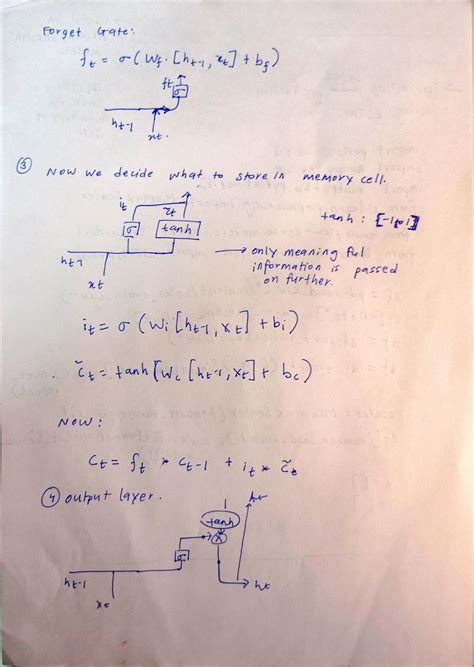 Forget Gate:
f_t = σ(W_f. [h_t-1, x_t] + b_f)
f_t
σ
h_t-1
x_t.
③ Now we decide what to store in memory cell.
i_t c̃_t
tanh : [-1 to 1]
σ tanh
h_t-1
→ only meaning ful
information is passed
on further.
x_t
i_t = σ (W_i [h_t-1, x_t] + b_i)
c̃_t = tanh [W_c [h_t-1, x_t] + b_c)
Now:
C_t = f_t * C_t-1 + i_t * c̃_t
④ output layer.
h_t
tanh
x
σ
h_t-1
h_t
x_t